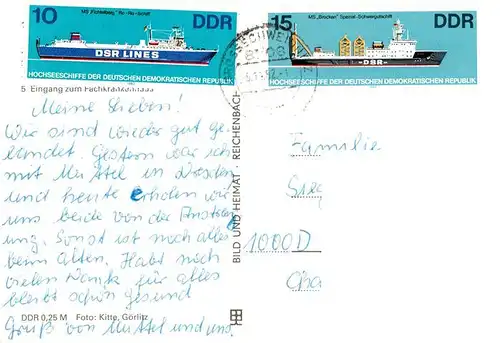 10 MS „Fichtelberg“ Ro-Ro-Schiff DDR
DSR LINES
HOCHSEESCHIFFE DER DEUTSCHEN DEMOKRATISCHEN REPUBLIK
15 MS „Brocken“ Spezial-Schwergutschiff DDR
-DSR-
HOCHSEESCHIFFE DER DEUTSCHEN DEMOKRATISCHEN REPUBLIK
5 Eingang zum Fachkrankenhaus
Meine Lieben!
Wir sind wieder gut ge-
landet. Gestern war ich
mit Muttel in Dresden
und heute erholen wir
uns beide von der
ung. Sonst ist noch alles
beim Alten. Habt noch
vielen Dank für alles
bleibt schön gesund
Gruß von Muttel und uns.
DDR 0,25 M Foto: Kitte, Görlitz
BILD UND HEIMAT · REICHENBACH
Familie
Sieg
1000
Cha